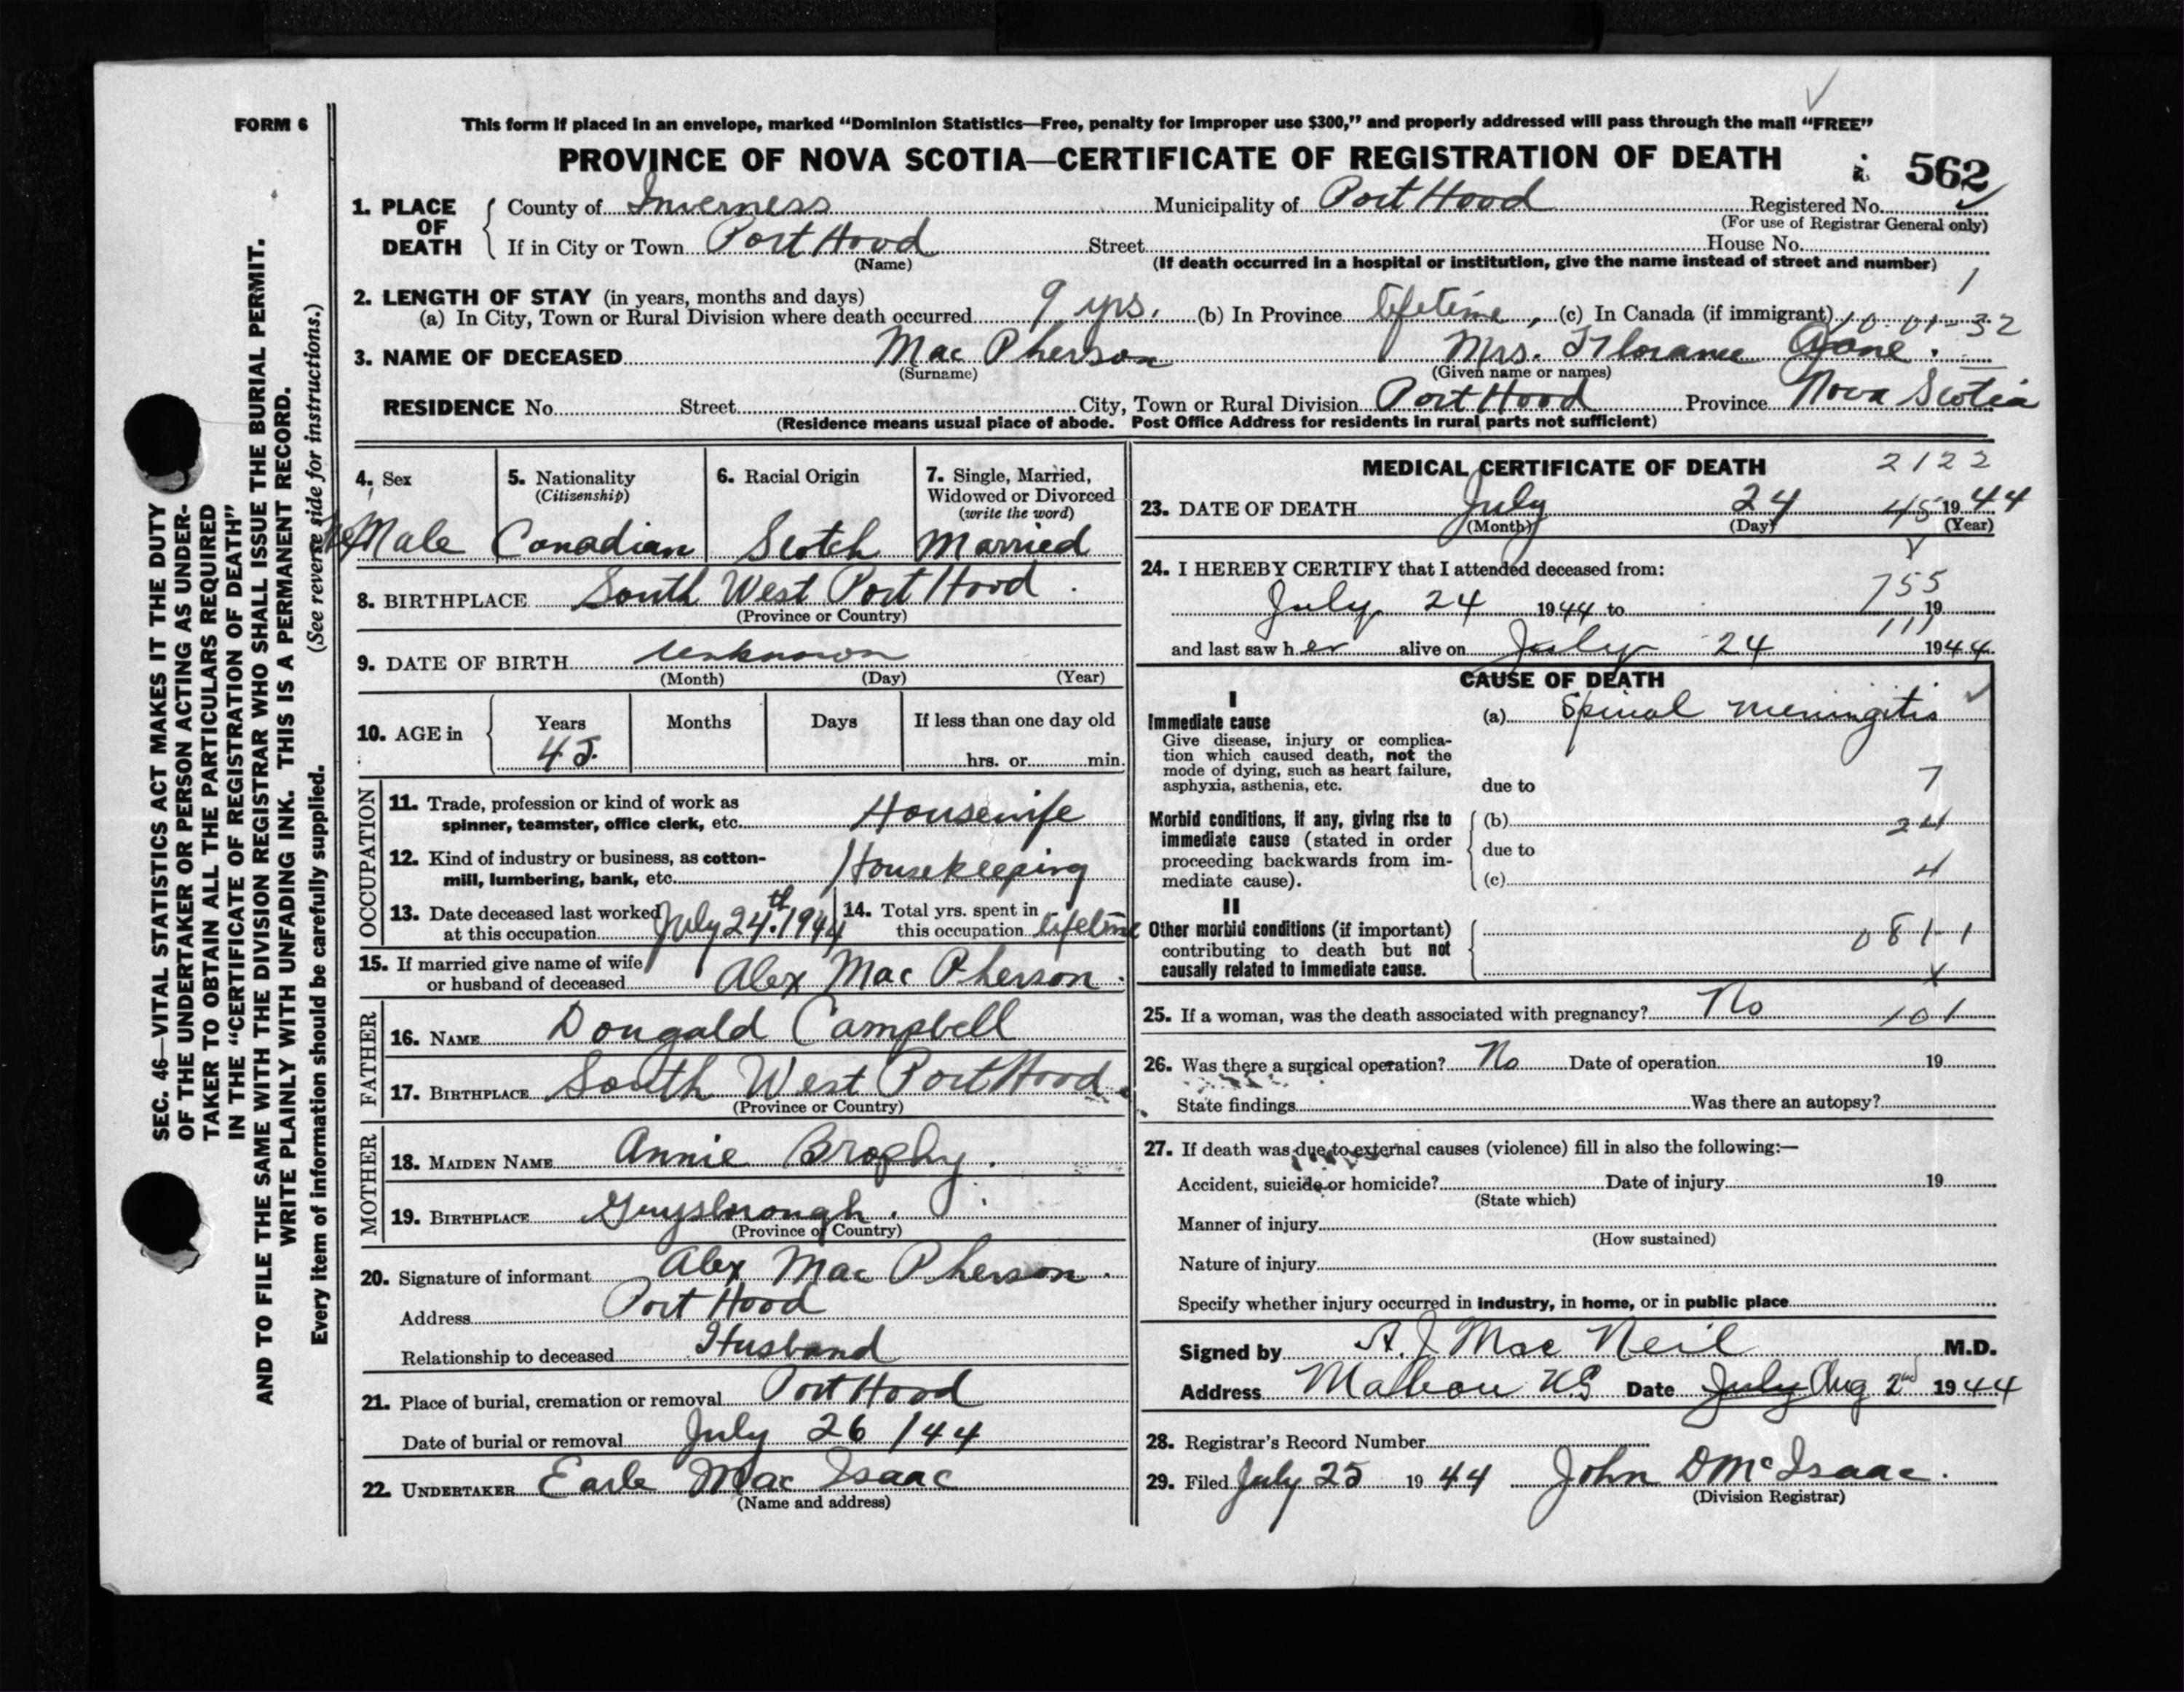 FORM 6
This form if placed in an envelope, marked “Dominion Statistics—Free, penalty for improper use $300,” and properly addressed will pass through the mail “FREE”
PROVINCE OF NOVA SCOTIA—CERTIFICATE OF REGISTRATION OF DEATH
562
1. PLACE OF DEATH
County of Inverness Municipality of Port Hood Registered No.
(For use of Registrar General only)
If in City or Town Port Hood Street House No.
(Name) (If death occurred in a hospital or institution, give the name instead of street and number)
1
2. LENGTH OF STAY (in years, months and days)
(a) In City, Town or Rural Division where death occurred 9 yrs. (b) In Province lifetime, (c) In Canada (if immigrant)
10-01-32
3. NAME OF DECEASED Mac Pherson Mrs. Florance Jane.
(Surname) (Given name or names)
RESIDENCE No. Street City, Town or Rural Division Port Hood Province Nova Scotia
(Residence means usual place of abode. Post Office Address for residents in rural parts not sufficient)
SEC. 46—VITAL STATISTICS ACT MAKES IT THE DUTY
OF THE UNDERTAKER OR PERSON ACTING AS UNDER-
TAKER TO OBTAIN ALL THE PARTICULARS REQUIRED
IN THE “CERTIFICATE OF REGISTRATION OF DEATH”
AND TO FILE THE SAME WITH THE DIVISION REGISTRAR WHO SHALL ISSUE THE BURIAL PERMIT.
WRITE PLAINLY WITH UNFADING INK. THIS IS A PERMANENT RECORD.
Every item of information should be carefully supplied. (See reverse side for instructions.)
4. Sex
Male
5. Nationality
(Citizenship)
Canadian
6. Racial Origin
Scotch
7. Single, Married,
Widowed or Divorced
(write the word)
Married
8. BIRTHPLACE South West Port Hood.
(Province or Country)
9. DATE OF BIRTH unknown
(Month) (Day) (Year)
10. AGE in Years Months Days If less than one day old
45. hrs. or min.
OCCUPATION
11. Trade, profession or kind of work as
spinner, teamster, office clerk, etc. Housewife
12. Kind of industry or business, as cotton-
mill, lumbering, bank, etc. Housekeeping
13. Date deceased last worked
at this occupation July 24th. 1944
14. Total yrs. spent in
this occupation lifetime
15. If married give name of wife
or husband of deceased Alex Mac Pherson.
FATHER
16. NAME Dougald Campbell
17. BIRTHPLACE South West Port Hood.
(Province or Country)
MOTHER
18. MAIDEN NAME Annie Brophy.
19. BIRTHPLACE Guysborough.
(Province or Country)
20. Signature of informant Alex Mac Pherson.
Address Port Hood
Relationship to deceased Husband
21. Place of burial, cremation or removal Port Hood
Date of burial or removal July 26/44
22. UNDERTAKER Earle Mac Isaac
(Name and address)
MEDICAL CERTIFICATE OF DEATH
2122
23. DATE OF DEATH July 24 45 1944
(Month) (Day) (Year)
24. I HEREBY CERTIFY that I attended deceased from:
755
July 24 1944 to 19
111
and last saw her alive on July 24 1944
CAUSE OF DEATH
I
Immediate cause
Give disease, injury or complica-
tion which caused death, not the
mode of dying, such as heart failure,
asphyxia, asthenia, etc.
(a) Spinal meningitis
due to 7
Morbid conditions, if any, giving rise to
immediate cause (stated in order
proceeding backwards from im-
mediate cause).
(b) 24
due to
(c) 4
II
Other morbid conditions (if important)
contributing to death but not
causally related to immediate cause.
081-1
x
25. If a woman, was the death associated with pregnancy? No 101
26. Was there a surgical operation? No Date of operation 19
State findings Was there an autopsy?
27. If death was due to external causes (violence) fill in also the following:—
Accident, suicide or homicide? Date of injury 19
(State which)
Manner of injury
(How sustained)
Nature of injury
Specify whether injury occurred in industry, in home, or in public place
Signed by A. J Mac Neil M.D.
Address Mabou NS Date July Aug 2nd 1944
28. Registrar's Record Number
29. Filed July 25 1944 John D McIsaac.
(Division Registrar)